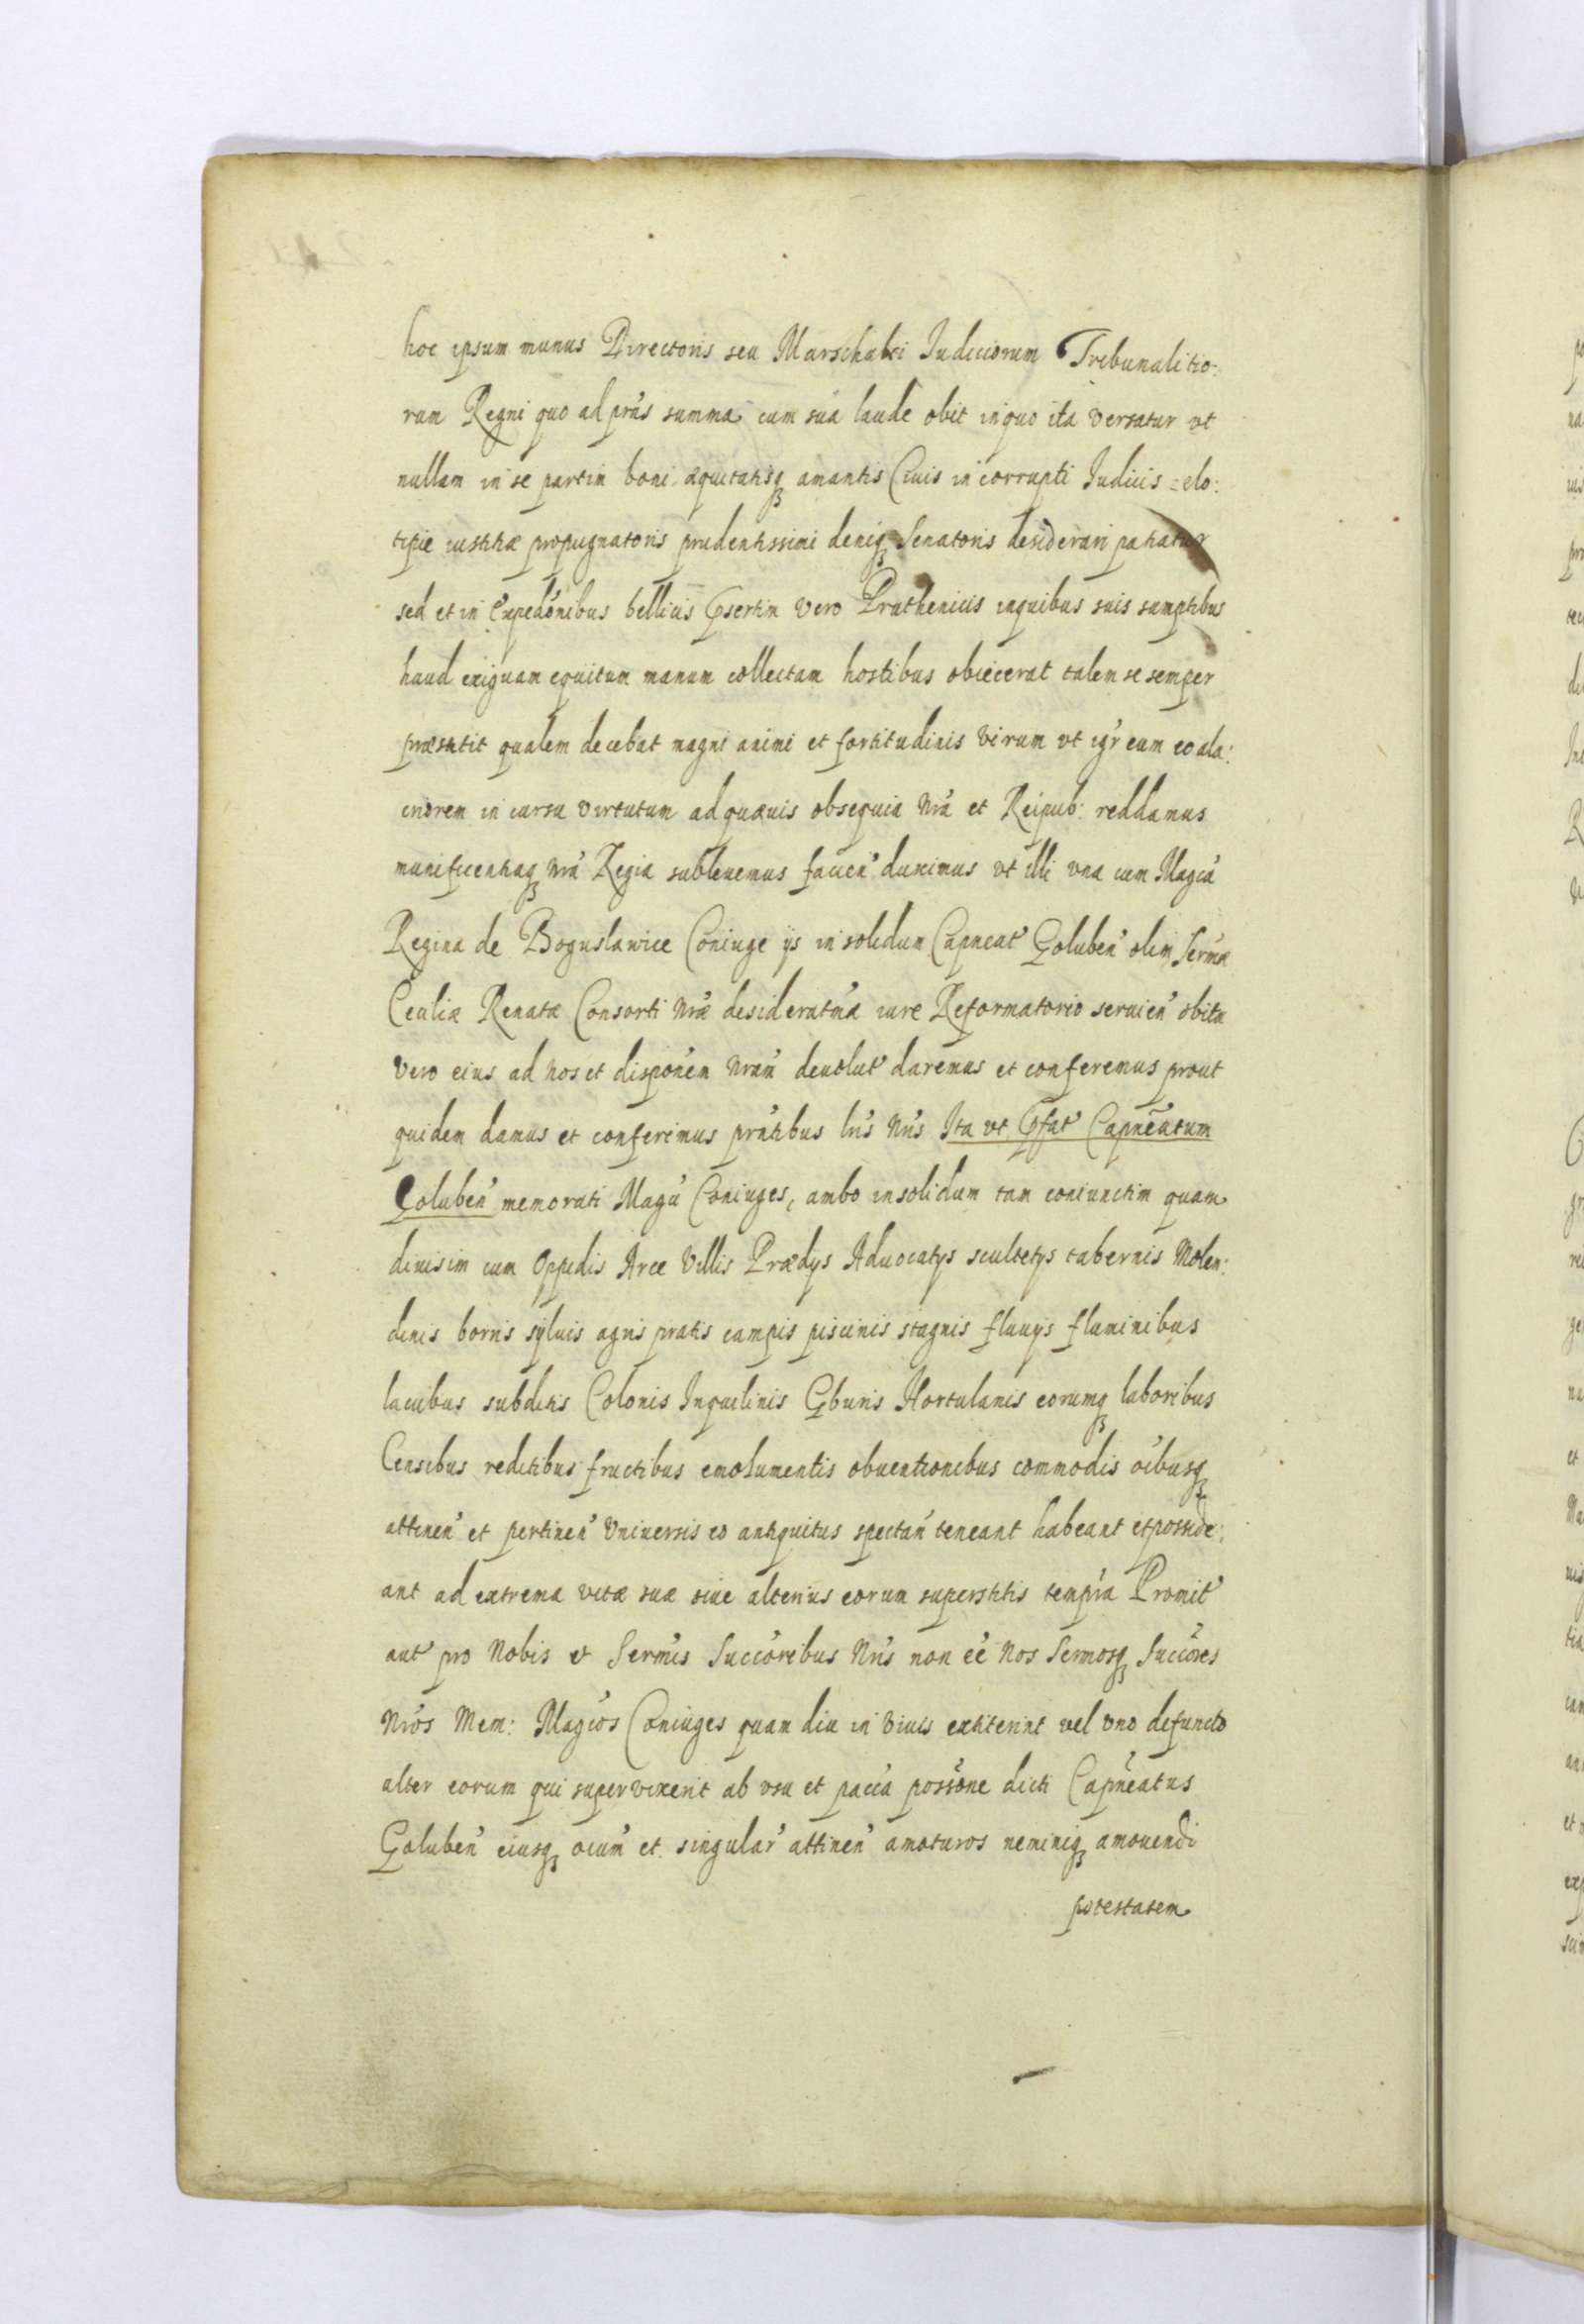 hoc ipsum munus Directoris seu Marschalci Iudiciorum Tribunalitio:
rum Regni quo ad pns̃ summa cum sua laude obit in quo ita versatur vt
nullam in se partim boni æquitatisq3 amantis Ciuis incorrupti Iudicis zelo:
tipie iustitiæ propugnatoris prudentissimi deniq3 Senatoris desiderari patiatur
sed et in Expedõnibus bellicis p̃sertim vero Pruthenicis in quibus suis sumptibus
haud exiguam equitum manum collectam hostibus obiecerat talem se semper
præstitit qualem decebat magni animi et fortitudinis virum vt igr̃ eum eo ala:
criorem in cursu virtutum ad quæuis obsequia nr̃a et Reipub: reddamus
munificentiaq3 nr̃a Regia subleuemus facien̄ duximus vt illi vna cum Magcã
Regina de Boguslawice Coniuge ijs in solidum Capneat̃ Goluben̄ olim Sermæ̃
Ceciliæ Renatæ Consorti Nræ̃ desideratmæ̃ iure Reformatorio seruien̄ obitu
vero eius ad nos et disponẽm Nram̃ deuolut̃ daremus et conferemus prout
quidem damus et conferimus prñtibus lris̃ Nris̃ Ita vt p̃fat̃ Capnẽatum
Goluben̄ memorati Magci̇̃ Coniuges, ambo in solidum tam coniunctim quam
diuisim cum Oppidis Arce Villis Prædijs Aduocatijs scultetijs tabernis Molen:
dinis borris syluis agris pratis campis piscinis stagnis fluuijs fluminibus
lacubus subditis Colonis Inquilinis Gburis Hortulanis eorumq3 laboribus
Censibus reditibus fructibus emolumentis obuentionibus commodis oĩbusq3
attinen̄ et pertinen̄ Vniuersis eo antiquitus spectan̄ teneant habeant et posside:
ant ad extrema vitæ suæ siue alterius eorum superstitis tempra̓ Promit̃
aut̃ pro Nobis et Sermis̃ Succõribus Nris̃ non eẽ Nos Sermosq3 Succõres
Nros̃ Mem: Magcos̃ Coniuges quam diu in viuis extiterint vel vno defuncto
alter eorum qui supervixerit ab vsu et pacca̓ possõne dicti Capnẽatus
Goluben̄ eiusq3 oium̃ et singular̃ attinen̄ amoturos neminiq3 amouendi
potestatem